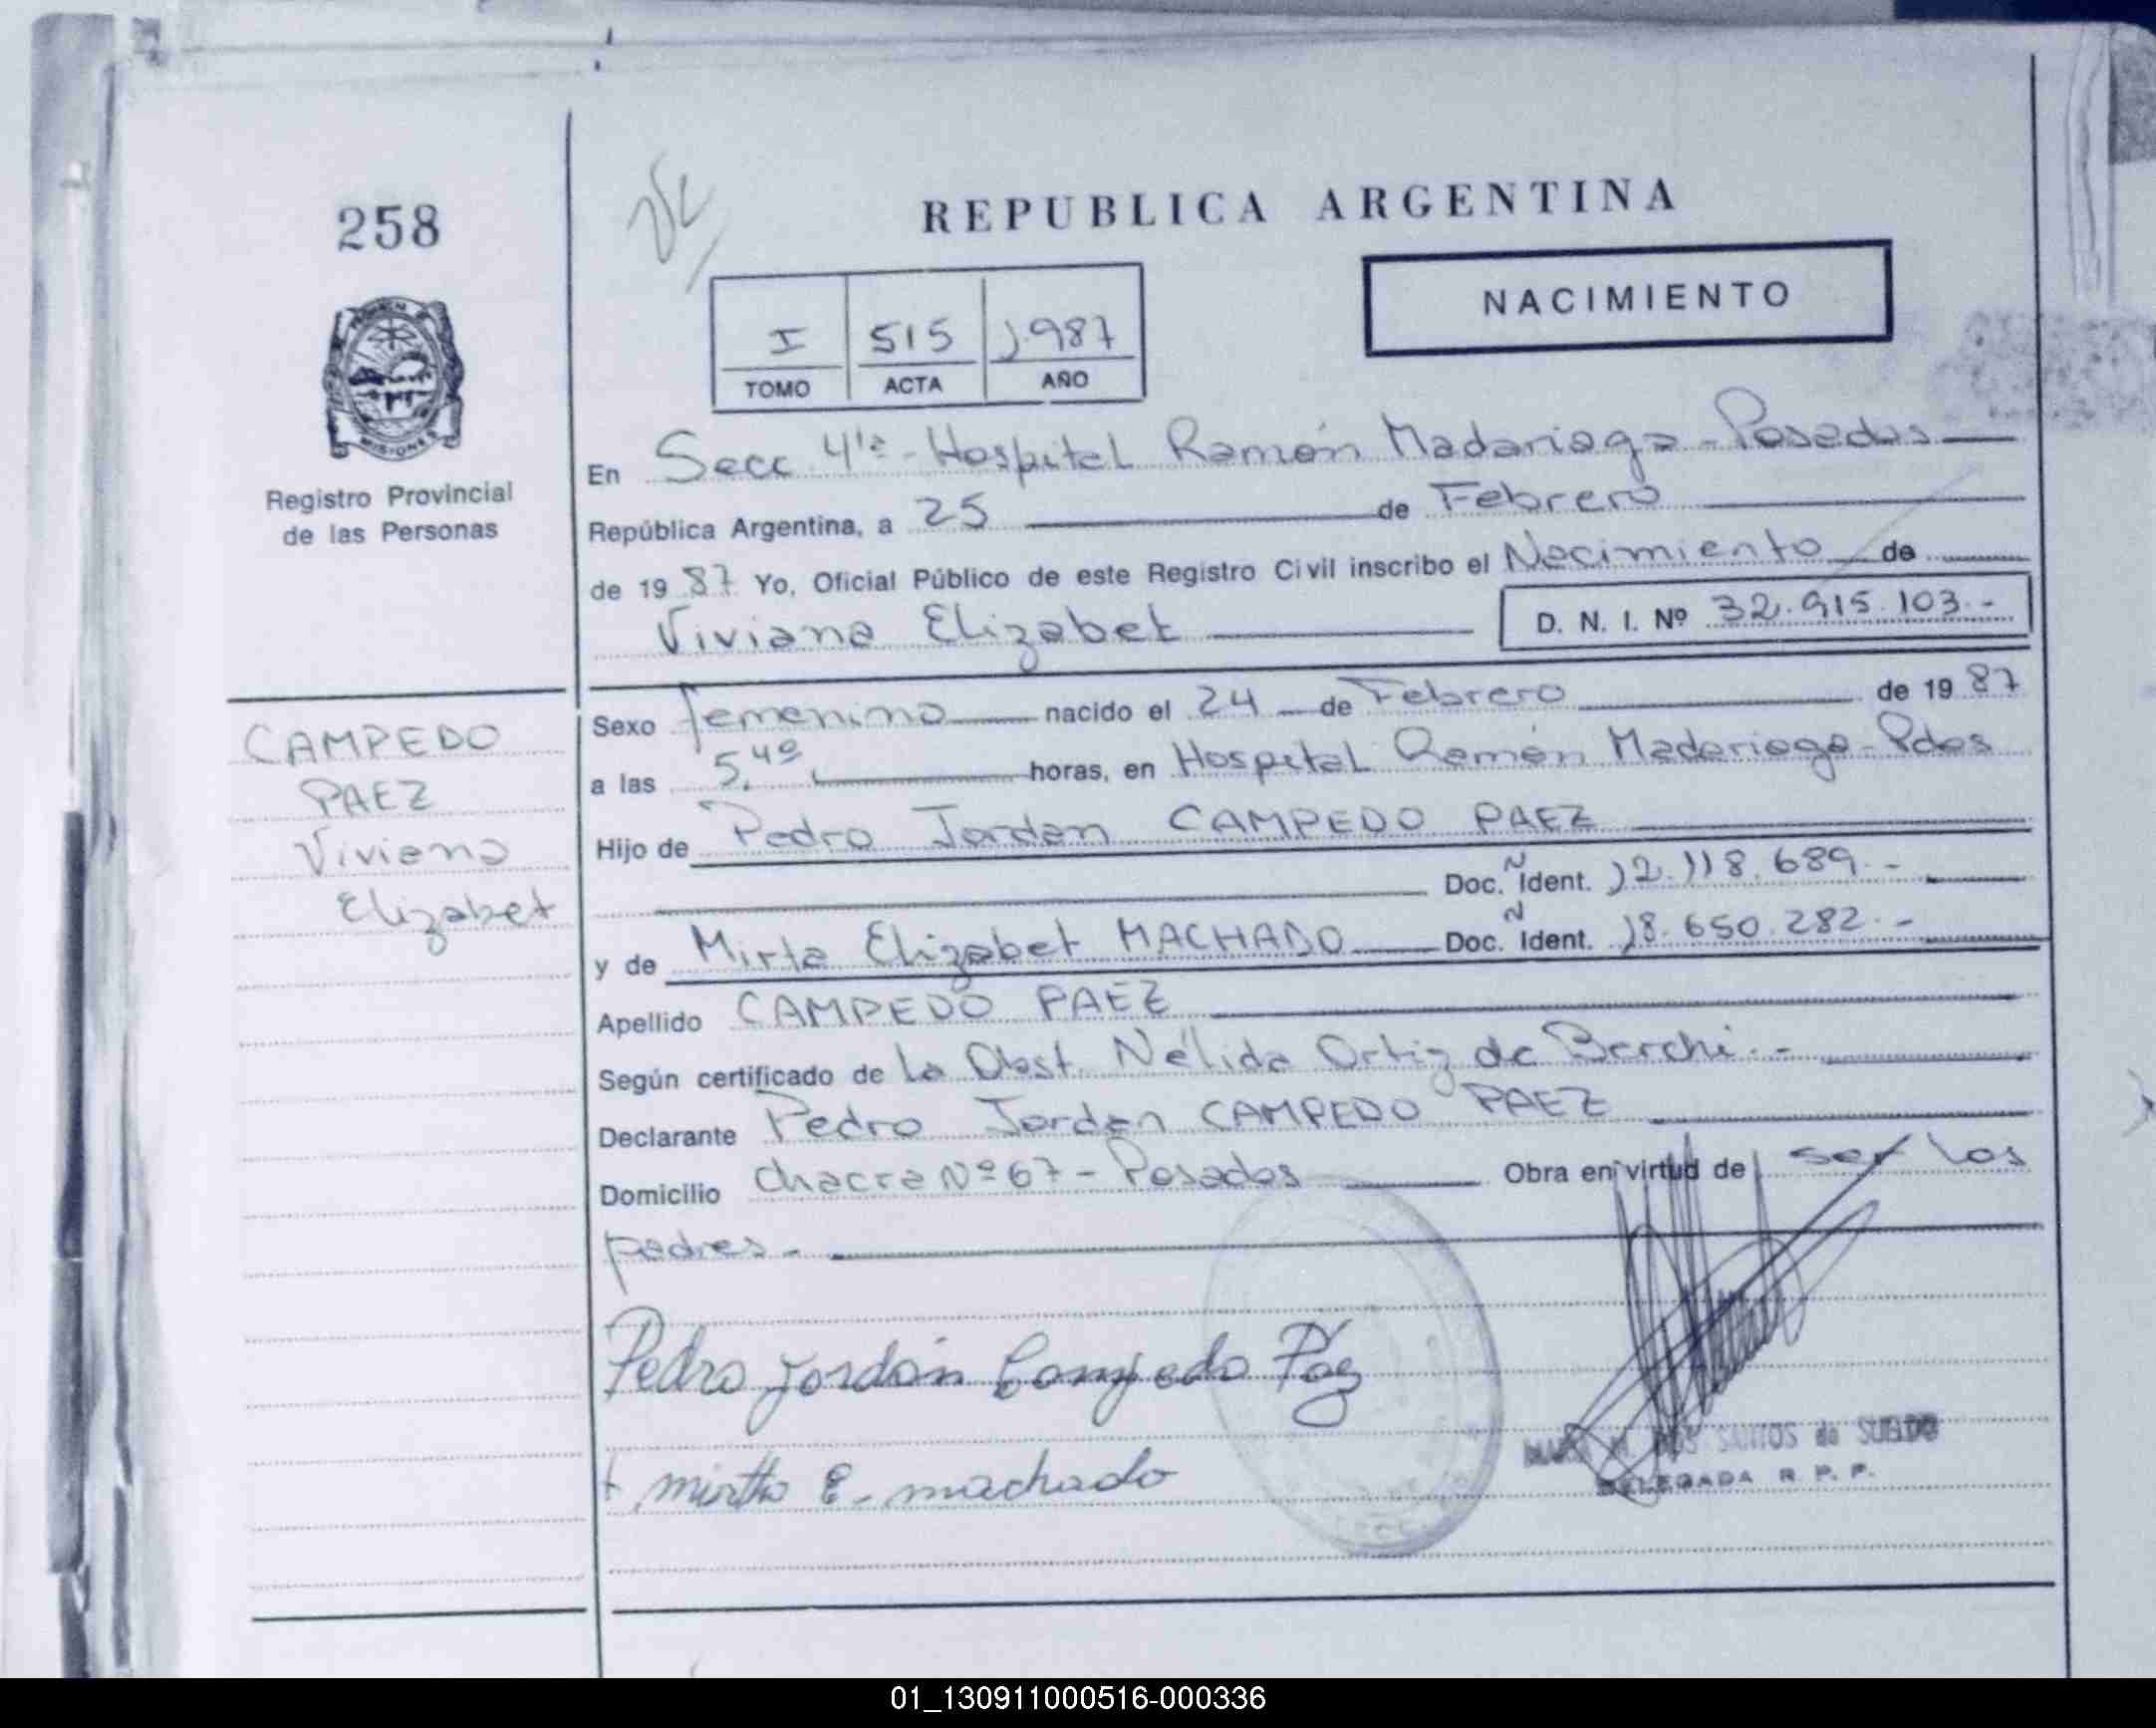 258
REPUBLICA ARGENTINA
NACIMIENTO
I 515 1.987
TOMO ACTA AÑO
Registro Provincial
de las Personas
En Secc 4ta - Hospital Ramón Madariaga - Posadas
República Argentina, a 25 de Febrero
de 19 87 Yo, Oficial Público de este Registro Civil inscribo el Nacimiento de
Viviana Elizabet D. N. I. Nº 32.915.103.-
CAMPEDO
PAEZ
Viviana
Elizabet
Sexo femenino nacido el 24 de Febrero de 19 87
a las 5,40 horas, en Hospital Ramón Madariaga - Pdas
Hijo de Pedro Jordan CAMPEDO PAEZ
Doc. Ident. 12.118.689.-
y de Mirta Elizabet MACHADO Doc. Ident. 18.650.282.-
Apellido CAMPEDO PAEZ
Según certificado de la Obst. Nélida Ortiz de Berchi.-
Declarante Pedro Jordan CAMPEDO PAEZ
Domicilio Chacra Nº 67 - Posadas Obra en virtud de ser los
padres.-
Pedro Jordán Campedo Páez
mirtha E. machado
DOS SANTOS de SUELDO
DELEGADA R. P. P.
01_130911000516-000336